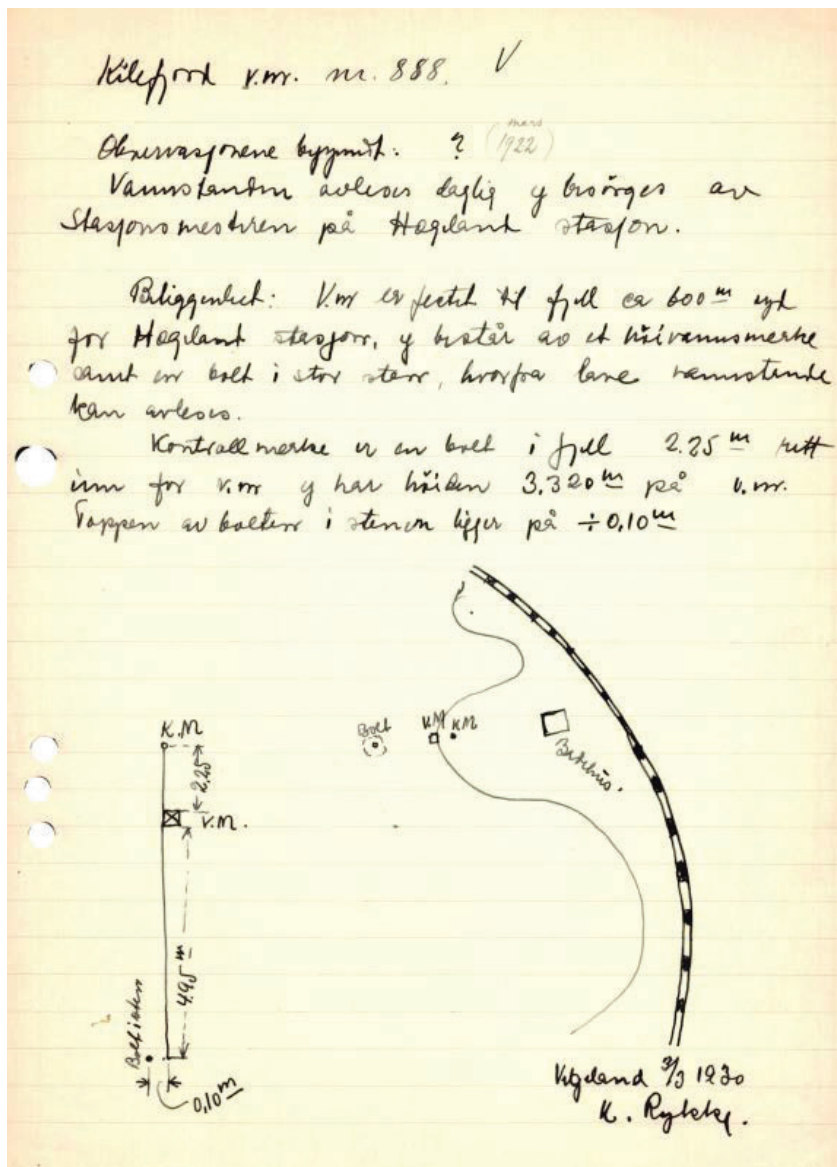 Kilefjord v.m. nr. 888. V
mars
Observasjonene begynnt: ? (1922)
Vannstanden avleses daglig og besörges av
Stasjonsmesteren på Hægeland stasjon.
Beliggenhet: V.m er festet til fjell ca 600 m syd
for Hægeland stasjon, og består av et höivannsmerke
samt en bolt i stor sten, hvorfra lave vannstande
kan avleses.
Kontrollmerke er en bolt i fjell 2.25 m rett
inn for v.m og har höiden 3.320 m på v.m.
Toppen av bolten i stenen ligger på ÷ 0,10 m
K.M
2.25
V.M.
4.95 m
Bolt i sten
0,10 m
Bolt
V.M K.M
Betehus.
3/3 1930
K. Rykke.